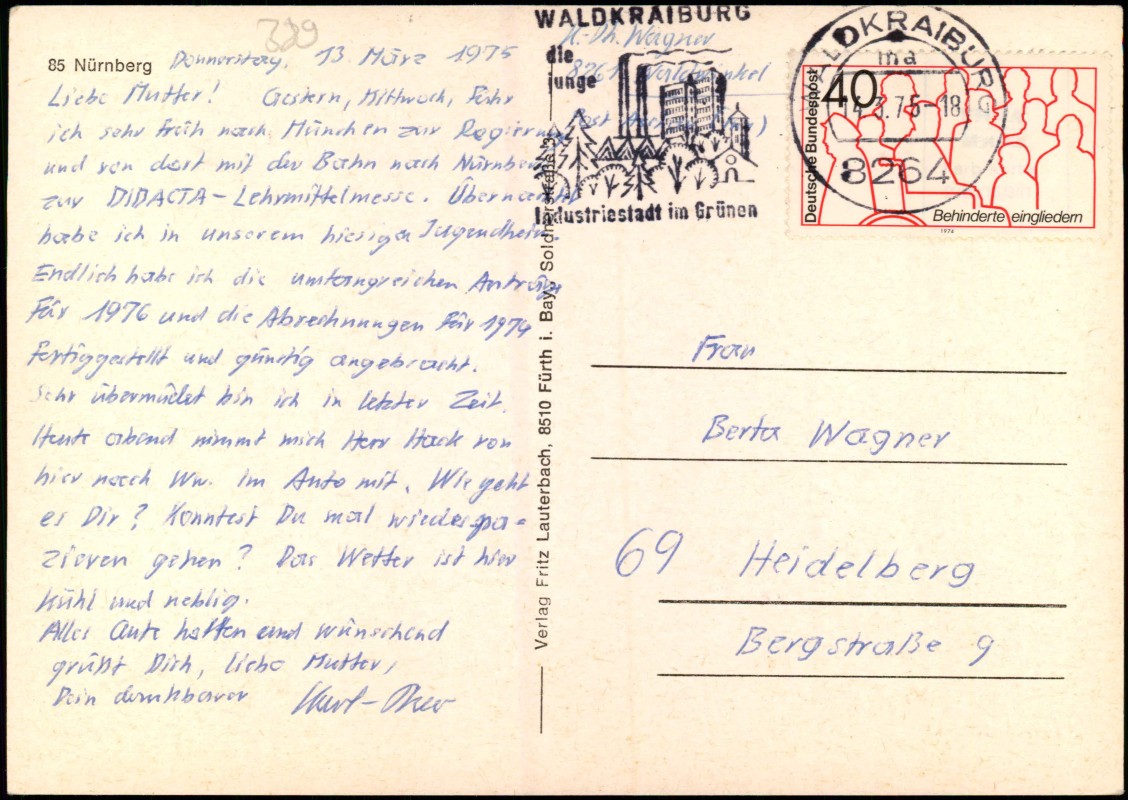 389
85 Nürnberg Donnerstag, 13. März 1975
Liebe Mutter! Gestern, Mittwoch, fuhr
ich sehr früh nach München zur Regierung
und von dort mit der Bahn nach Nürnberg
zur DIDACTA-Lehrmittelmesse. Übernachtet
habe ich in unserem hiesigen Jugendheim.
Endlich habe ich die umfangreichen Anträge
für 1976 und die Abrechnungen für 1974
fertiggestellt und günstig angebracht.
Sehr übermüdet bin ich in letzter Zeit.
Heute abend nimmt mich Herr Hack von
hier nach Ww. im Auto mit. Wie geht
es Dir? Konntest Du mal wieder spa=
zieren gehen? Das Wetter ist hier
kühl und neblig.
Alles Gute hoffen und wünschend
grüßt Dich, liebe Mutter,
Dein dankbarer Kurt-Theo
Verlag Fritz Lauterbach, 8510 Fürth i. Bay.
K.-Th. Wagner
8261 Waldwinkel
WALDKRAIBURG
die
junge
Industriestadt im Grünen
WALDKRAIBURG
ma
3.75-18
8264
Deutsche Bundespost
40
Behinderte eingliedern
1974
Frau
Berta Wagner
69 Heidelberg
Bergstraße 9